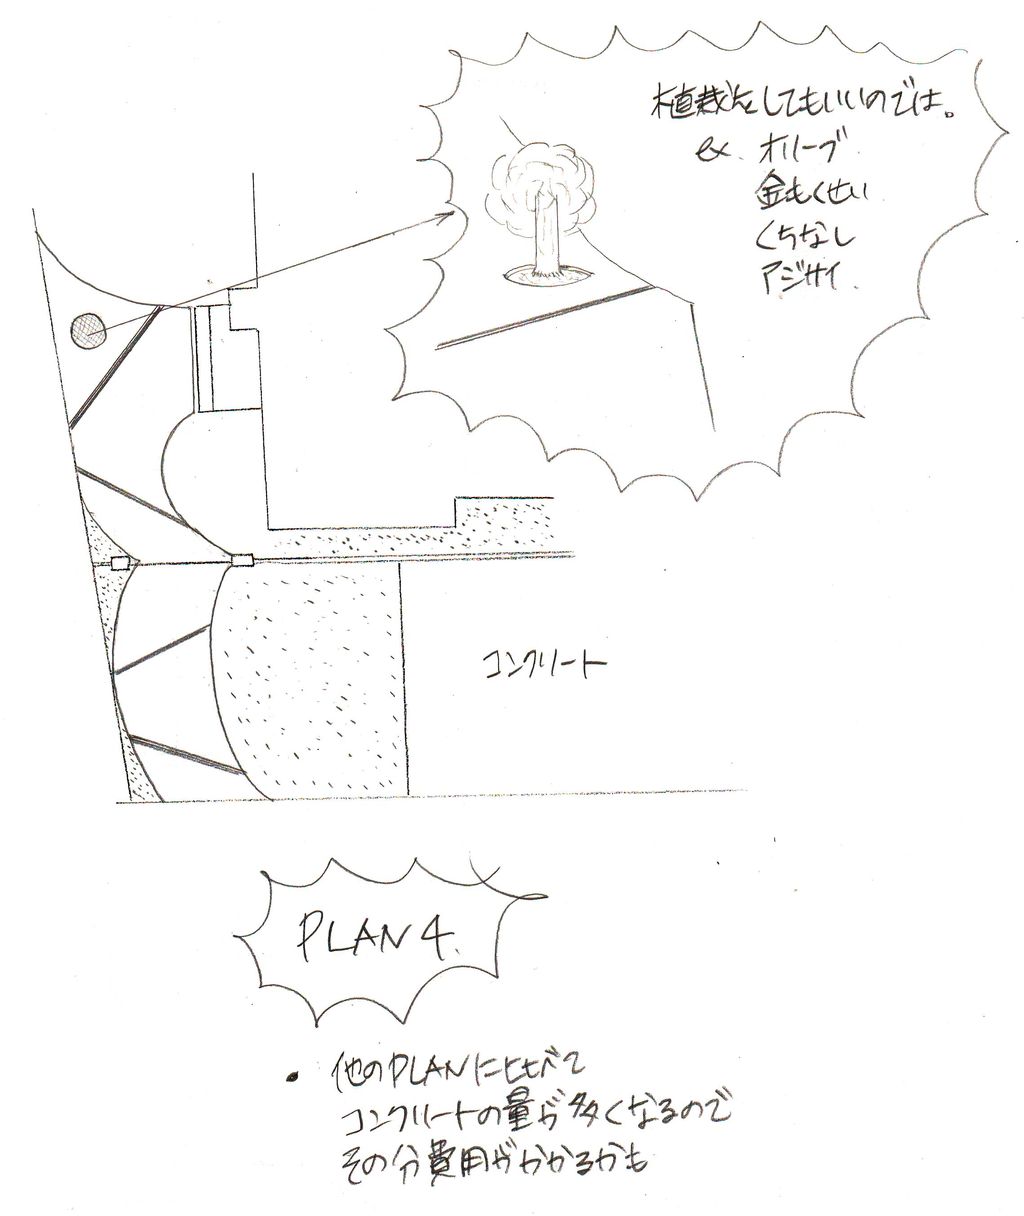 植栽をしてもいいのでは。
ex. オリーブ
金もくせい
くちなし
アジサイ.
コンクリート
PLAN 4.
• 他のPLANに比べて
コンクリートの量が多くなるので
その分費用がかかるかも